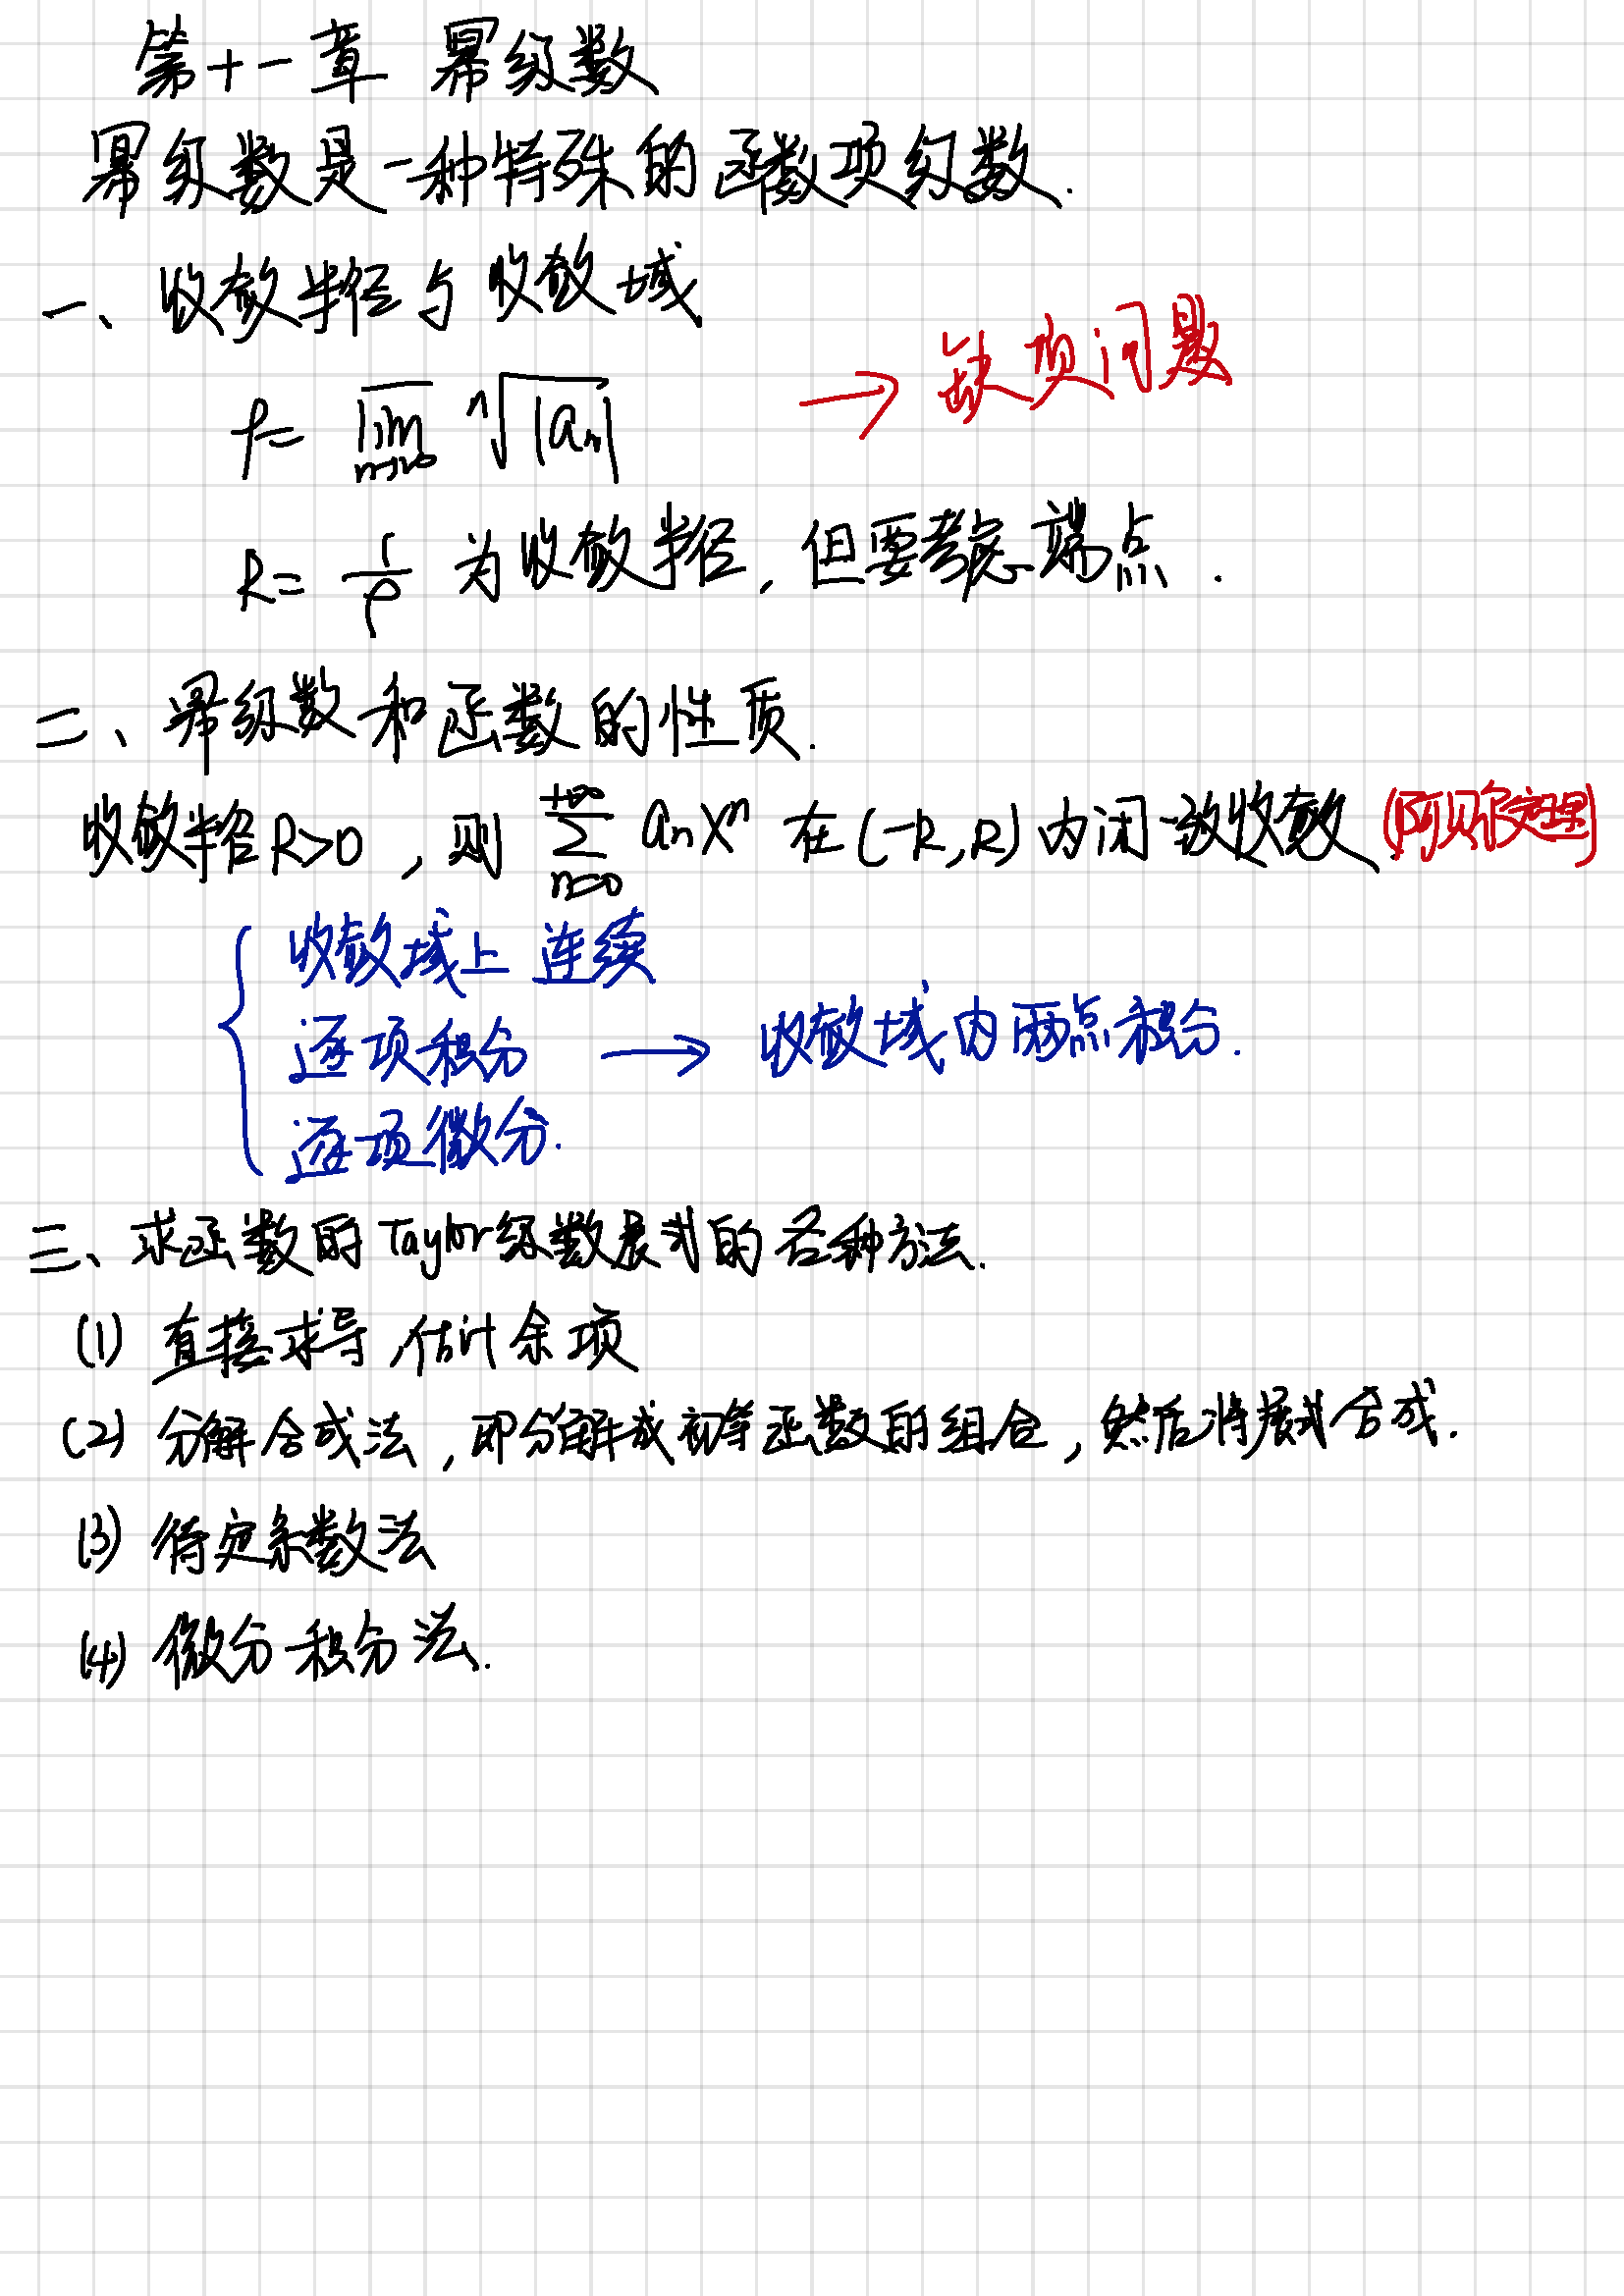 第十一章 幂级数
幂级数是一种特殊的函数项级数.
一、收敛半径与收敛域
ρ = \overline{lim}_{n→∞} \sqrt[n]{|a_n|} → 缺项问题
R = 1/ρ 为收敛半径, 但要考虑端点.
二、幂级数和函数的性质.
收敛半径 R>0, 则 \sum_{n=0}^{+∞} a_n x^n 在 (-R, R) 内闭一致收敛 (阿贝尔定理)
收敛域上 连续
逐项积分 → 收敛域内两点积分.
逐项微分.
三、求函数的Taylor级数展式的各种方法.
(1) 直接求导, 估计余项
(2) 分解合成法, 即分解成初等函数的组合, 然后将展式合成.
(3) 待定系数法
(4) 微分-积分法.